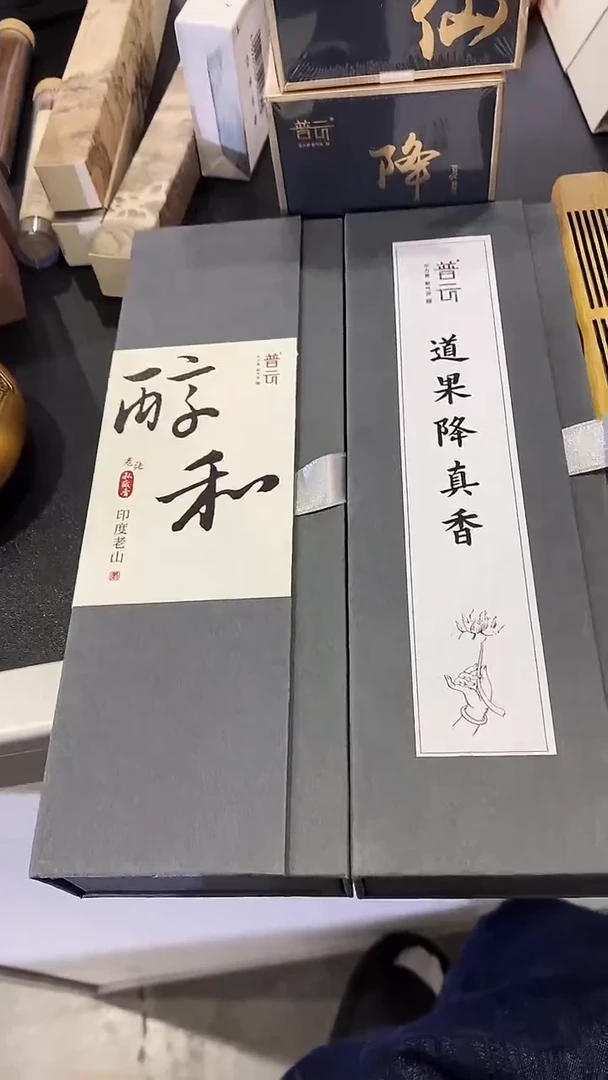 仙
普云
降
普云
醇
和
私藏堂
印度老山
普云
道果降真香